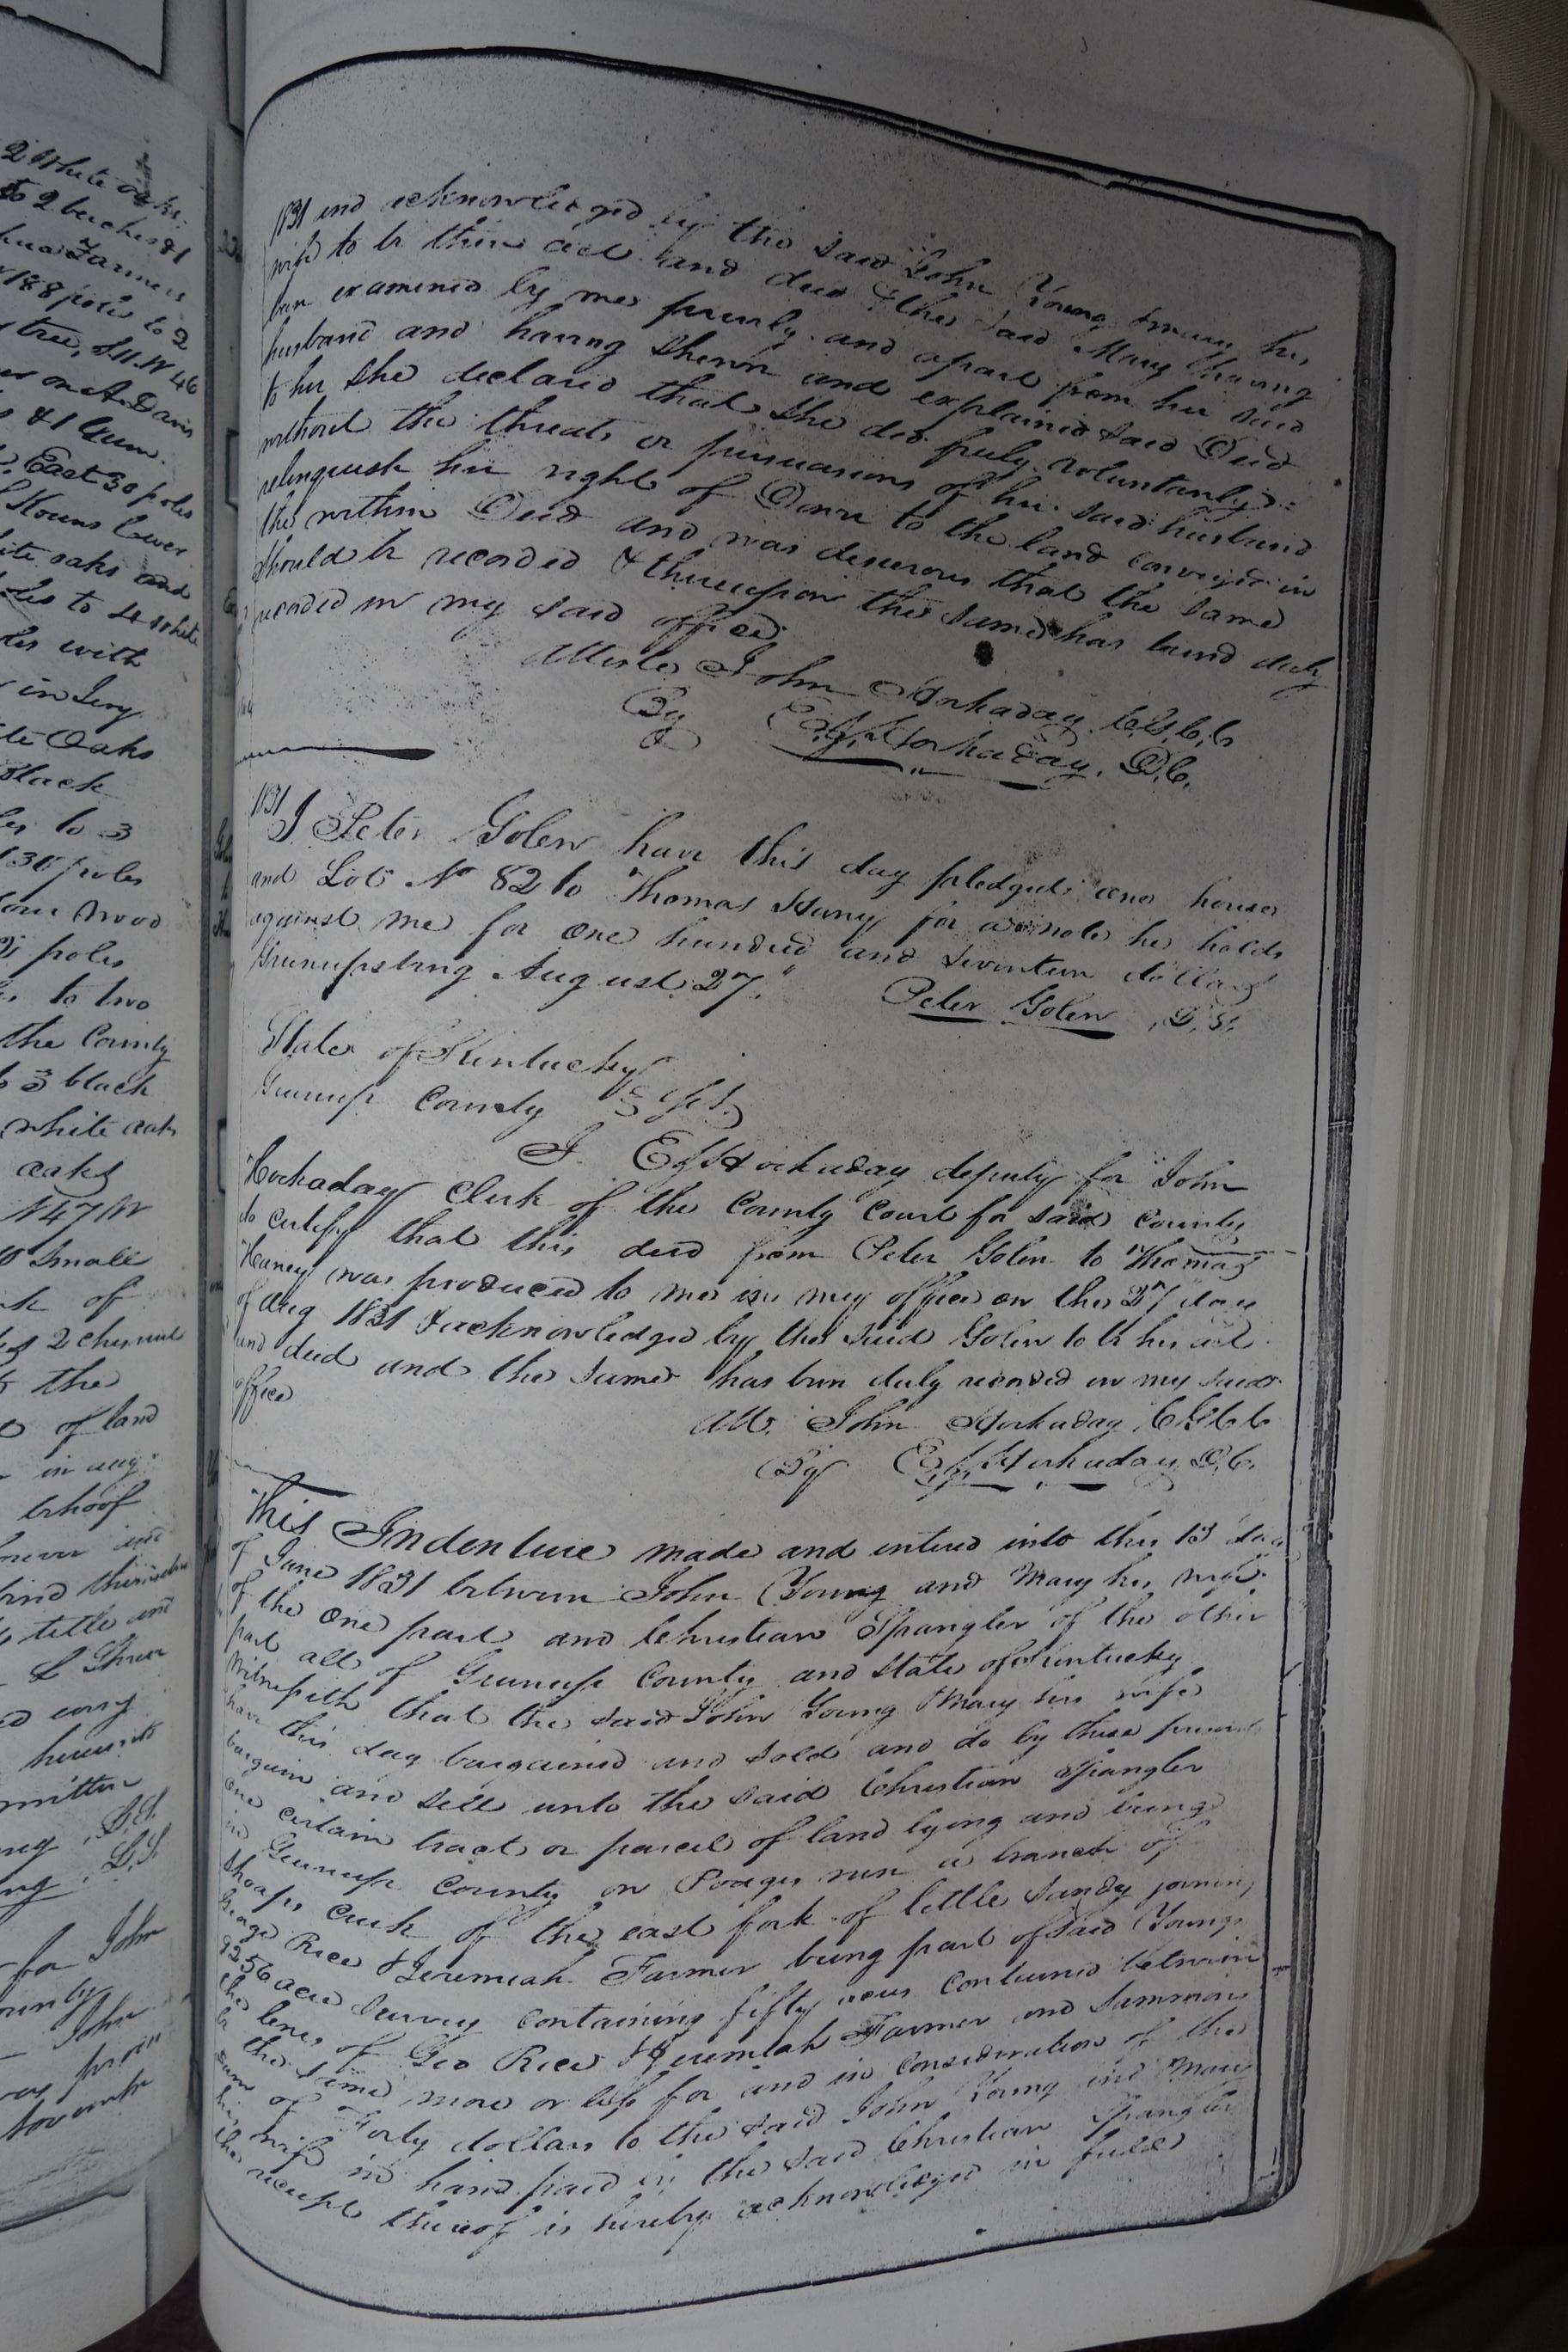 2 White oaks
to 2 beeches &1
Farmers
188 poles to 2
tree, S11.W 46
on A. Davis
& 1 Gum
East 30 poles
Kouns lower
white oaks and
poles to 4 white
with
in Levy
Oaks
Black
to 3
130 poles
wood
poles
to two
the County
3 black
white oak
oaks
N47W
small
of
2 chesnut
the
of land
in aug
behoof
forever and
bind themselves
title and
& Their
every
hereunto
written
L.S.
L.S.
for John
County
John
was
1831 and acknowledged by the said John Young & mary his
wife to be their act and deed & the said Mary having
been examined by me privily and apart from her said
husband and having shewn and explained said Deed
to her she declared that she did freely voluntarily &
without the threats or persuasions of her said husband
relinquish her right of Dower to the land conveyed in
the within Deed and was desirous that the same
should be recorded & thereupon the same has been duly
recorded in my said office
Atteste John Hockaday C.G.C.C
By E.f. Hockaday. D.C.
1831
I Peter Golen have this day pledged one house
and Lot No 82 to Thomas Hany for a note he holds
against me for one hundred and seventeen dollars
Greenupsburg August 27. Peter Golen L.S.
State of Kentucky
Greenup County Sct.
I E.f Hockaday deputy for John
Hockaday Clerk of the County Court for said County
do certify that this deed from Peter Golen to Thomas
Haney was produced to me in my office on the 27 day
of Aug 1831 & acknowledged by the said Golen to be his act
and deed and the same has been duly recorded in my said
office
Att. John Hockaday C G C C
By E.f. Hockaday D.C.
This Indenture made and entered into this 13 day
of June 1831 between John Young and Mary his wife
of the one part and Christian Spangler of the other
part all of Greenup County and State of Kentucky
Witnesseth that the said John Young & Mary his wife
have this day bargained and sold and do by these presents
bargain and sell unto the said Christian Spangler
one certain tract or parcel of land lying and being
in Greenup County on Poages run a branch of
Shoaps creek of the east fork of little Sandy joining
George Rice & Jeremiah Farmer being part of said Youngs
9256 acre survey containing fifty acres contained between
the lines of Geo Rice & Jeremiah Farmer and Sammons
be the same more or less for and in consideration of the
sum of Forty dollars to the said John Young and Mary
his wife in hand paid by the said Christian Spangler
the receipt thereof is hereby acknowledged in full &